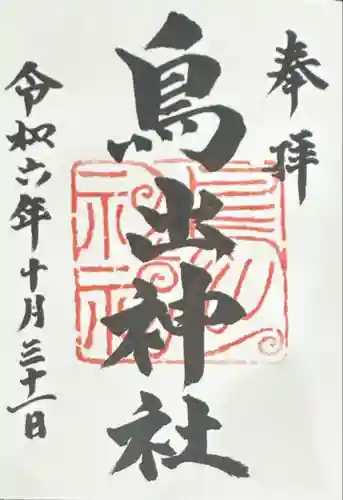 奉拝
鳥出神社
令和六年十月三十一日